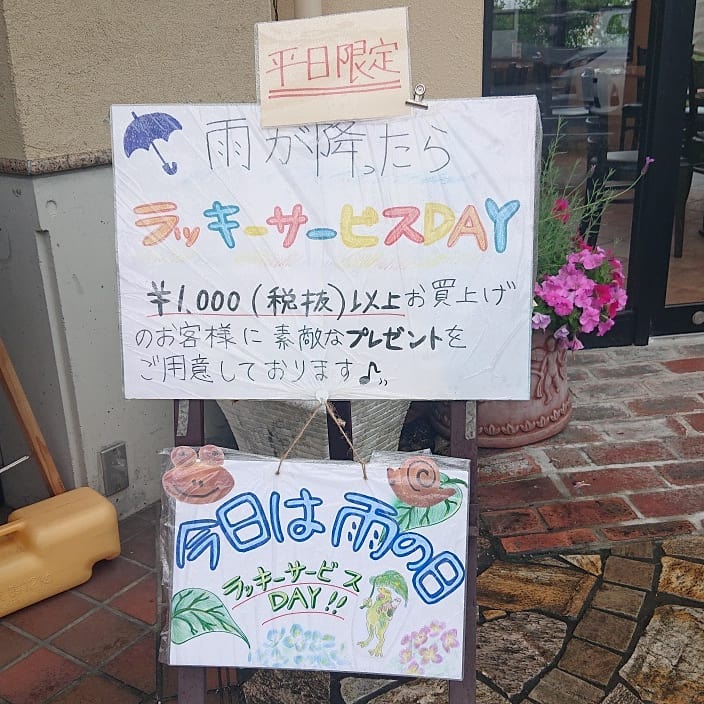 平日限定
雨が降ったら
ラッキーサービスDAY
¥1,000(税抜)以上お買上げ
のお客様に素敵なプレゼントを
ご用意しております♪
今日は雨の日
ラッキーサービス
DAY!!